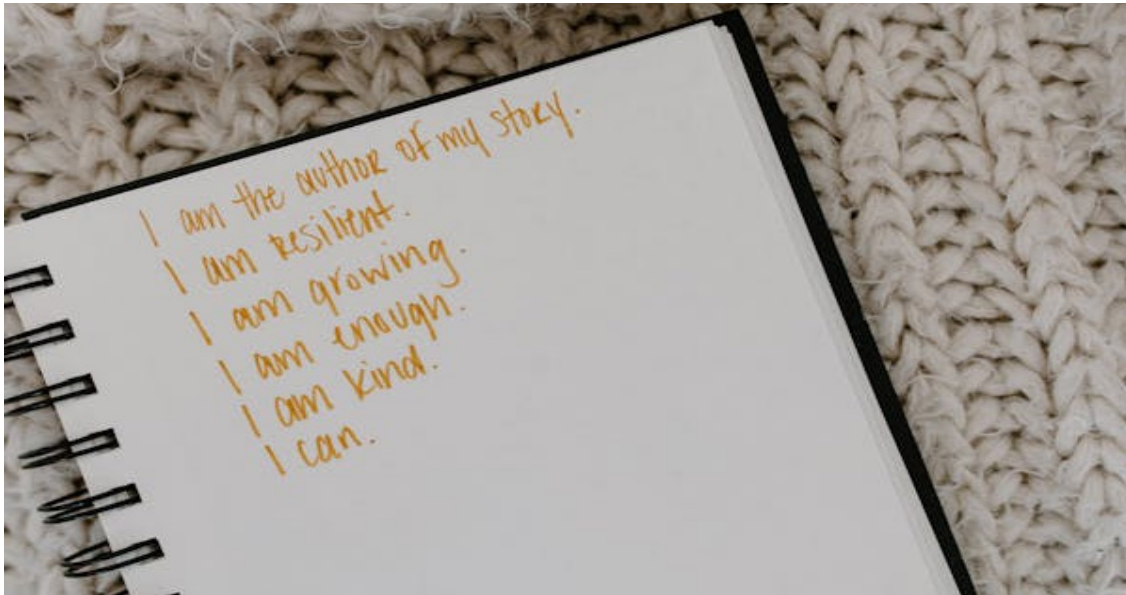 I am the author of my story.
I am resilient.
I am growing.
I am enough.
I am kind.
I can.